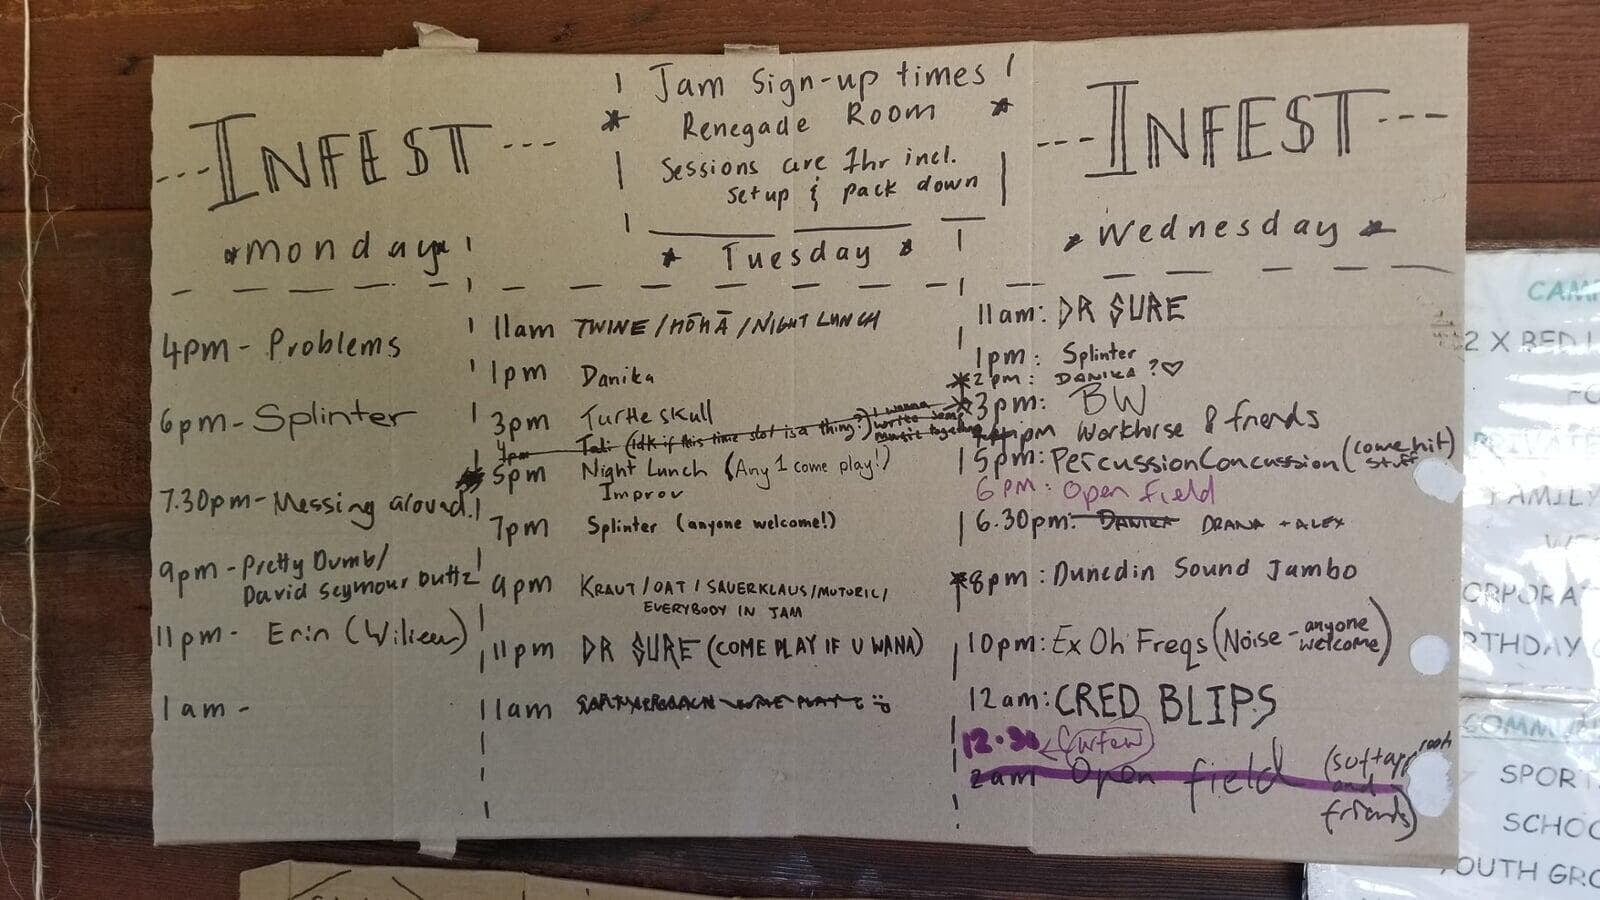 INFEST
Jam Sign-up times
Renegade Room
Sessions are 1hr incl.
setup & pack down
INFEST
Monday
4pm - Problems
6pm - Splinter
7.30pm - Messing around.
9pm - Pretty Dumb/
David Seymour Buttz
11pm - Erin (Wilieeu)
1am -
Tuesday
11am TWINE / MŌHĀ / NIGHT LUNCH
1pm Danika
3pm Turtle skull
4pm Tali (idk if this time slot is a thing?) I wanna
write some
music together
5pm Night Lunch (Any 1 come play!)
Improv
7pm Splinter (anyone welcome!)
9pm KRAUT / OAT / SAUERKLAUS / MOTORIC /
EVERYBODY IN JAM
11pm DR SURE (COME PLAY IF U WANA)
11am
Wednesday
11am: DR SURE
1pm: Splinter
2pm: DANIKA ?♡
3pm: BW
pm Workhorse & friends
5pm: Percussion Concussion (come hit
stuff)
6pm: Open field
6.30pm: DANIKA DRANA + ALEX
8pm: Dunedin Sound Jambo
10pm: Ex Oh Freqs (Noise - anyone
welcome)
12am: CRED BLIPS
12.30 ← Curfew
2am Open field (softapproach
and
friends)
CAM
2 X BED
FO
PRIVATE
FAMILY
WE
ORPORAT
RTHDAY
COMMUN
SPORT
SCHOO
OUTH GRO